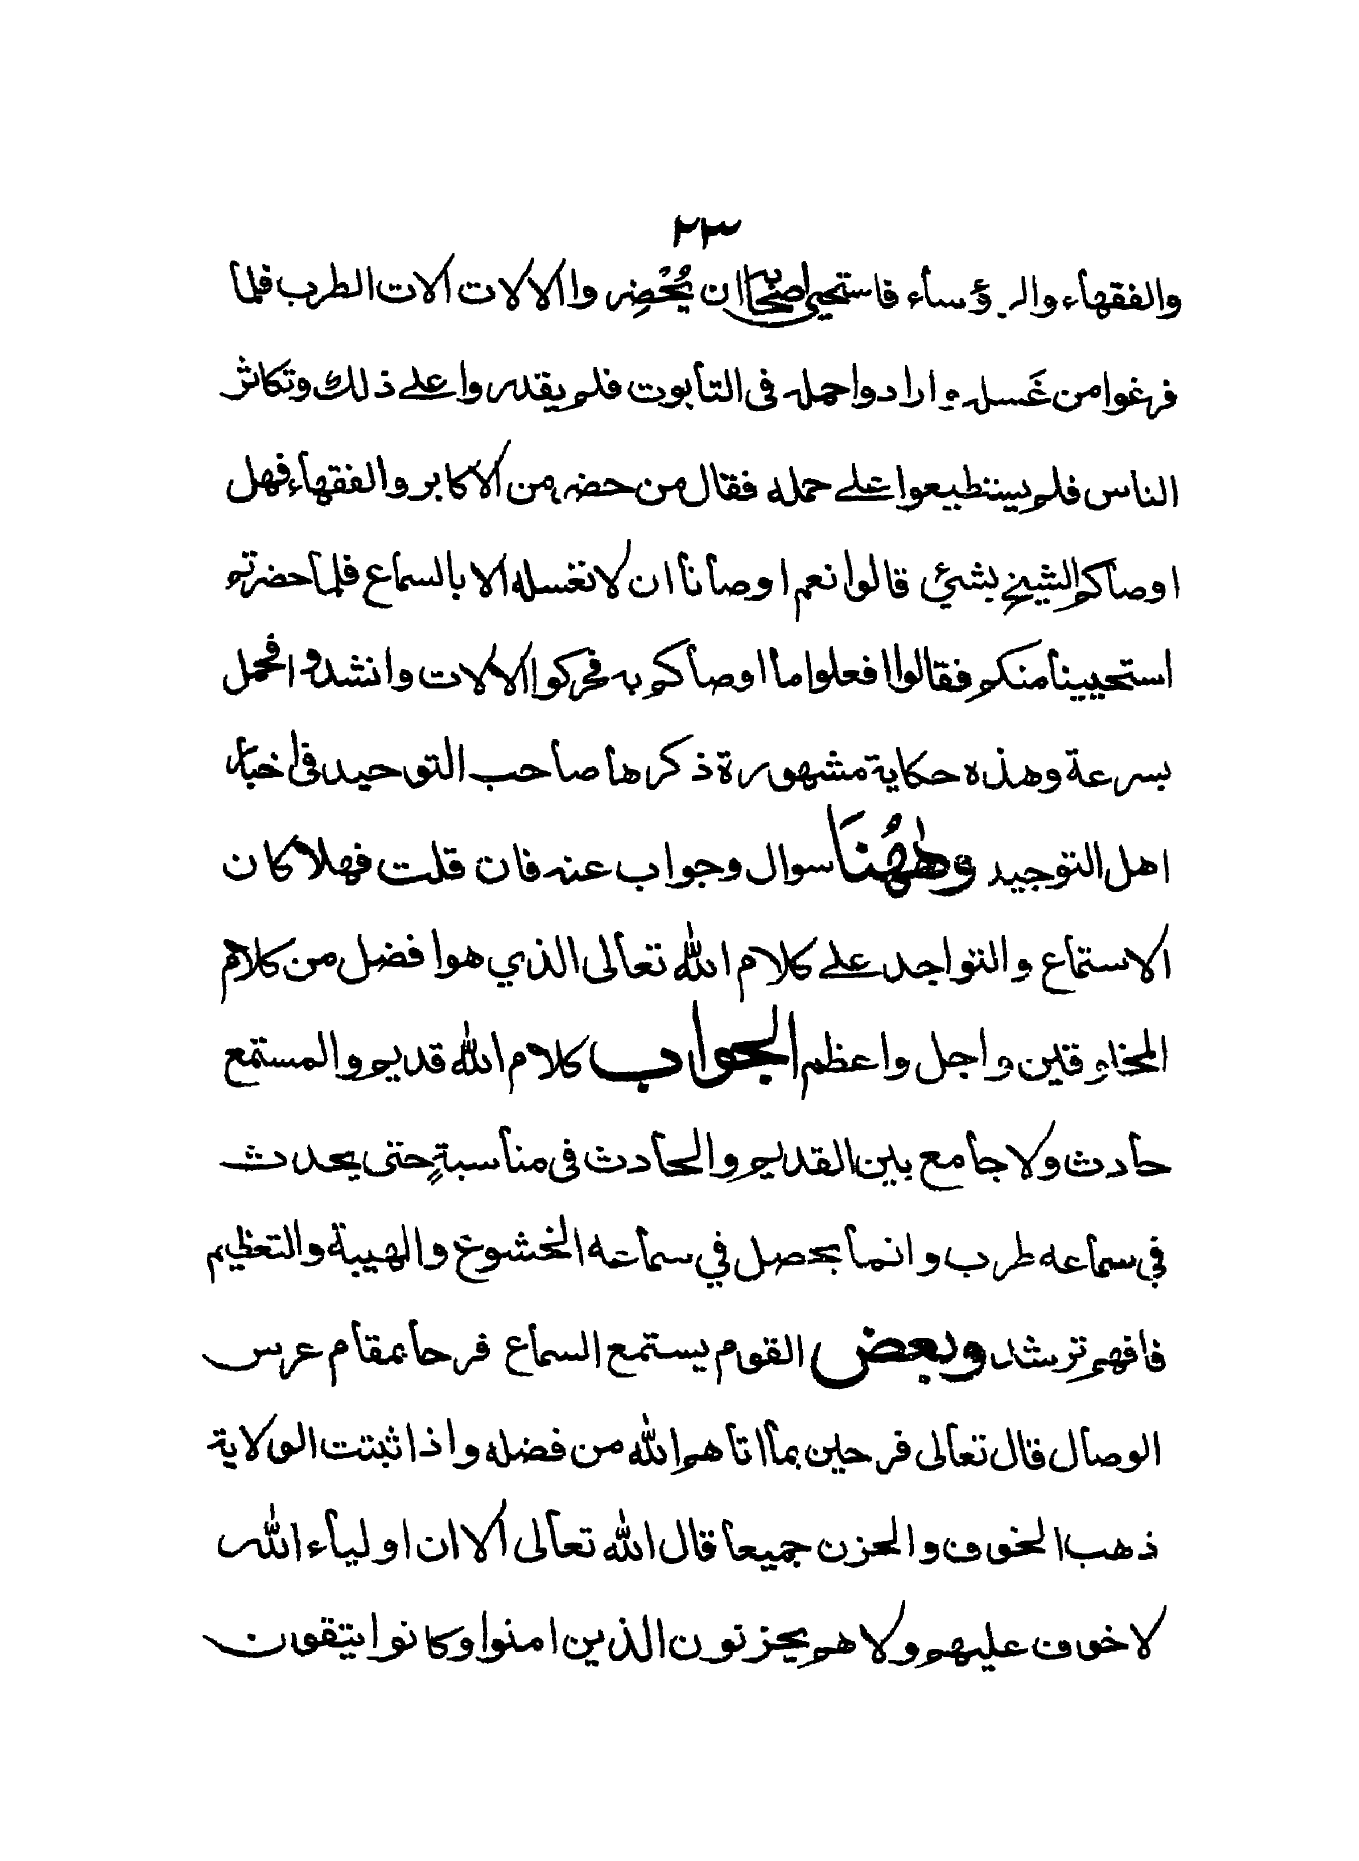 ٢٣
والفقهاء والرؤساء فاستحيى اصحابه ان يُحْضِروا الالات الات الطرب فلما
فرغوا من غَسله وارادوا حمله فى التابوت فلم يقدروا على ذلك وتكاثر
الناس فلم يستطيعوا على حمله فقال من حضر من الاكابر والفقهاء فهل
اوصاكم الشيخ بشئ قالوا نعم اوصانا ان لا نغسله الا بالسماع فلما حضرتم
استحيينا منكم فقالوا افعلوا ما اوصاكم به فحركوا الالات وانشدوا فحمل
بسرعة وهذه حكاية مشهورة ذكرها صاحب التوحيد فى اخبار
اهل التوحيد وهٰهُنَا سوال وجواب عنه فان قلت فهلا كان
الاستماع والتواجد على كلام الله تعالى الذي هو افضل من كلام
المخلوقين واجل واعظم الجواب كلام الله قديم والمستمع
حادث ولا جامع بين القديم والحادث فى مناسبةٍ حتى يحدث
في سماعه طرب وانما يحصل في سماعه الخشوع والهيبة والتعظيم
فافهم ترشد وبعض القوم يستمع السماع فرحا بمقام عرس
الوصال قال تعالى فرحين بما اتاهم الله من فضله واذا ثبتت الولاية
ذهب الخوف والحزن جميعا قال الله تعالى الا ان اولياء الله
لا خوف عليهم ولا هم يحزنون الذين امنوا وكانوا يتقون